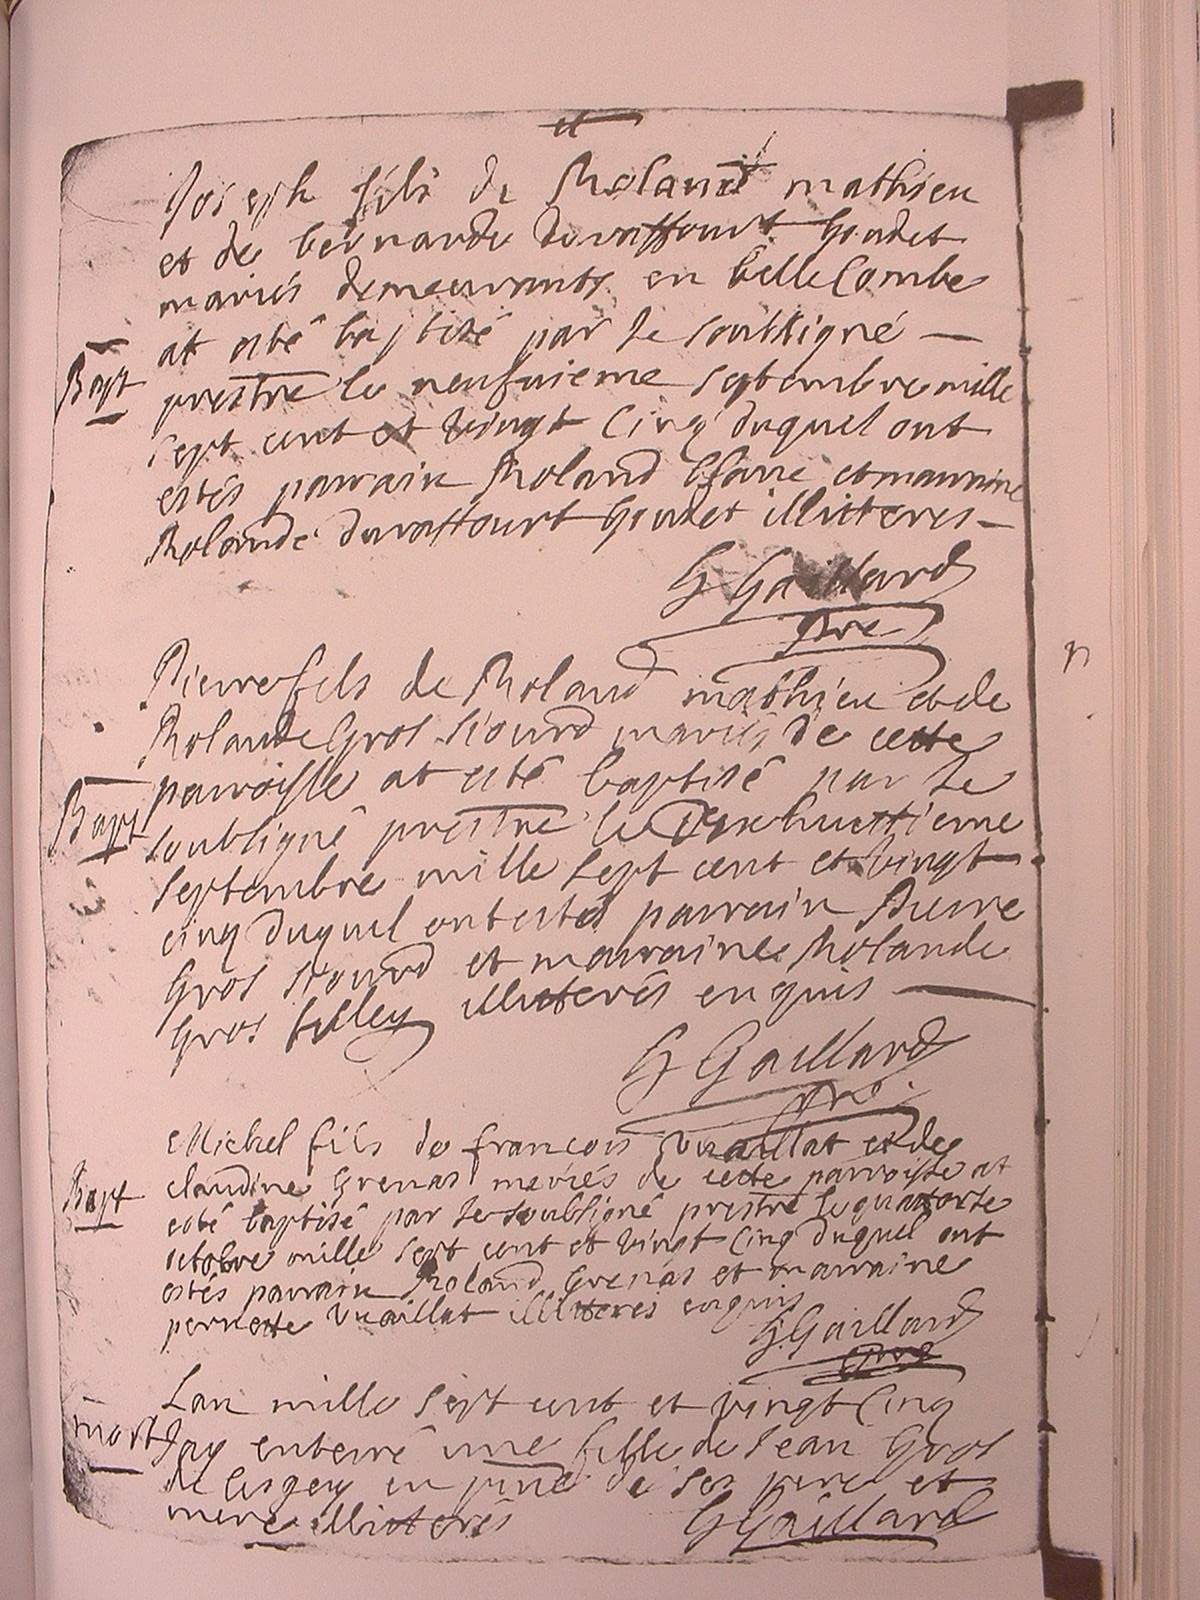 et
Joseph fils de Roland mathieu
et de bernarde duraffourt Goudet
mariés demeurants en belleCombe
at esté baptisé par le soubsigné —
Bapt
prestre le neufuieme septembre mille
sept cent et vingt Cinq duquel ont
estés parrain Roland et marraine
Rolande duraffourt Goudet illitteres —
G Gaillard
pre
Pierre fils de Roland mathieu et de
Rolande Gros siourd mariés de cette
parroisse at esté baptisé par le
Bapt
soubsigné prestre le Dixhuittieme
septembre mille sept cent et vingt
cinq duquel ont estés parrain Pierre
Gros siourd et marraine Rolande
Gros filley illitterés enquis —
G Gaillard
pre
Michel fils de françois Vuaillat et de
claudine Grenat mariés de cette parroisse at
Bapt
esté baptisé par le soubsigné prestre le quatorze
octobre mille sept cent et vingt Cinq duquel ont
estés parrain Roland Grenat et marraine
pernette Vuaillat illitteres enquis
G Gaillard
pre
Lan mille sept cent et vingt Cinq
mort
Jay enterré une fille de Jean Gros
de en pnce de ses pere et
mere illitterés
G Gaillard
n